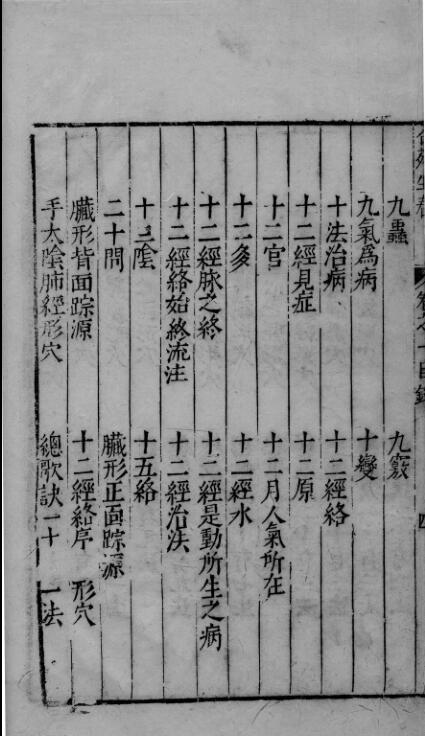 卷之一目錄 四
九蟲 九竅
九氣爲病 十變
十法治病 十二經絡
十二經見症 十二原
十二官 十二月人氣所在
十二多 十二經水
十二經脉之終 十二經是動所生之病
十二經絡始終流注 十二經治法
十陰 十五絡
二十問 臟形正面踪源
臟形背面踪源 十二經絡序 形穴
手太陰肺經形穴 總歌訣一十 一法